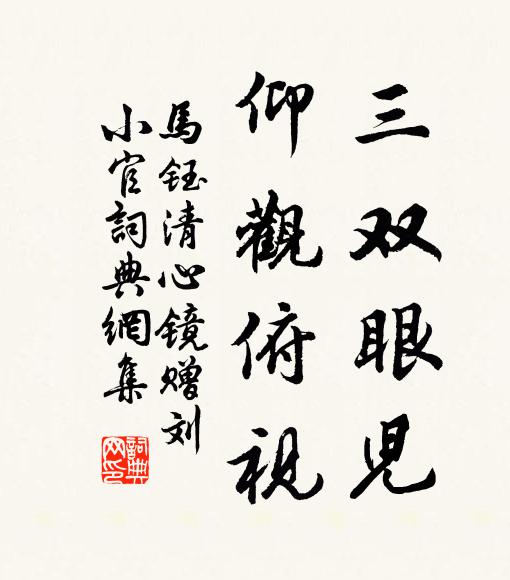 三双眼児
仰觀俯視
馬鈺清心镜赠刘
小官詞典網集
詞典
网印